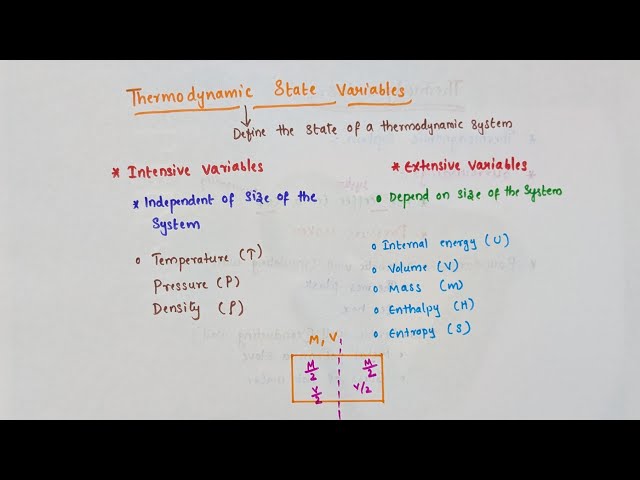 Thermodynamic State Variables
Define the state of a thermodynamic system
* Intensive Variables
* Independent of Size of the
System
• Temperature (T)
Pressure (P)
Density (ρ)
* Extensive Variables
• Depend on size of the System
• Internal energy (U)
• Volume (V)
• Mass (m)
• Enthalpy (H)
• Entropy (S)
M, V
M/2 M/2
V/2 V/2